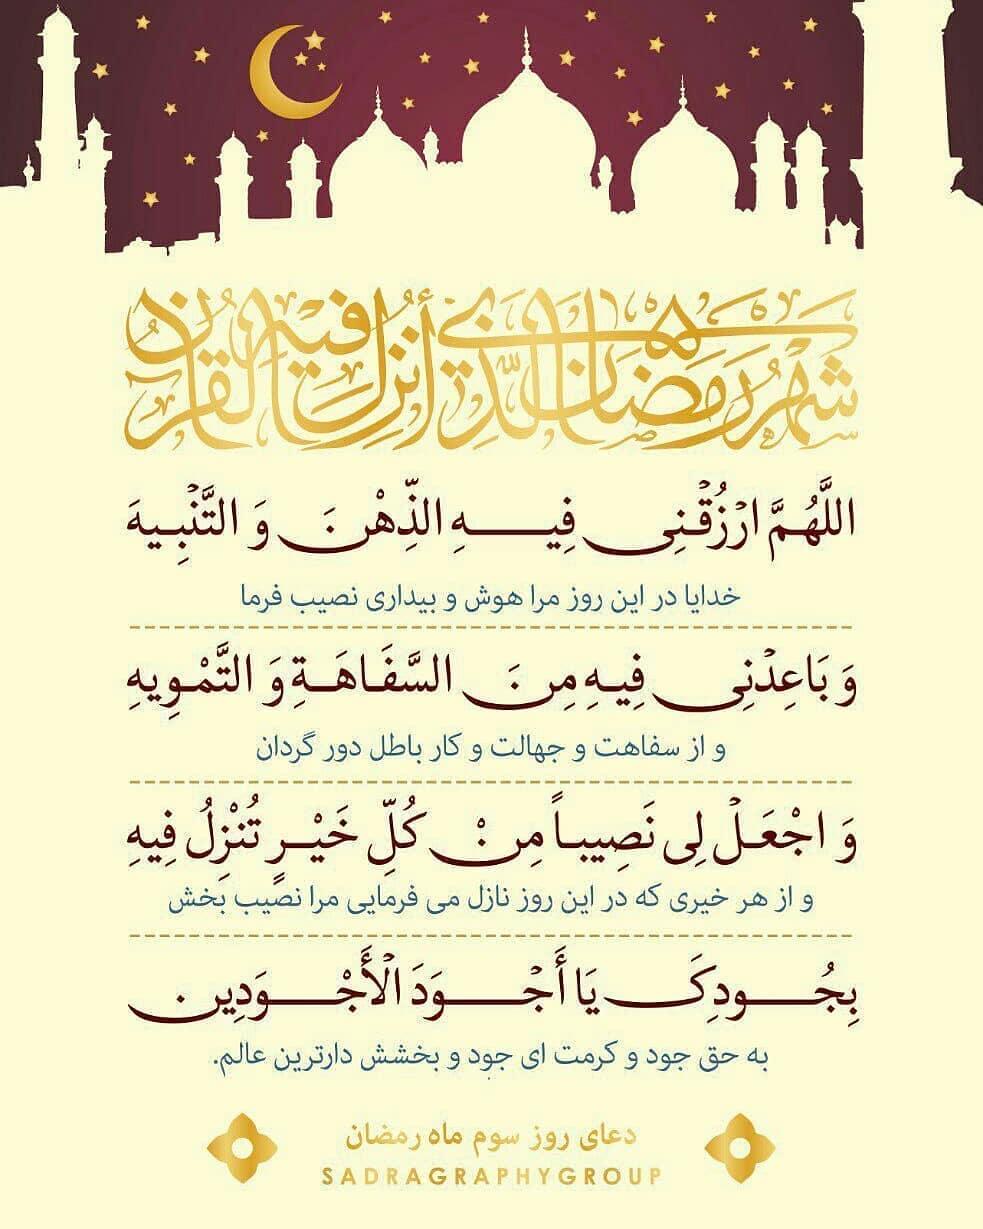 شَهْرُ رَمَضَانَ الَّذِي أُنْزِلَ فِيهِ الْقُرْآنُ
اللَّهُمَّ ارْزُقْنِي فِيهِ الذِّهْنَ وَ التَّنْبِيهَ
خدایا در این روز مرا هوش و بیداری نصیب فرما
وَ بَاعِدْنِي فِيهِ مِنَ السَّفَاهَةِ وَ التَّمْوِيهِ
و از سفاهت و جهالت و کار باطل دور گردان
وَ اجْعَلْ لِي نَصِيباً مِنْ كُلِّ خَيْرٍ تُنْزِلُ فِيهِ
و از هر خیری که در این روز نازل می فرمایی مرا نصیب بخش
بِجُودِكَ يَا أَجْوَدَ الْأَجْوَدِينَ
به حق جود و کرمت ای جود و بخشش دارترین عالم.
دعای روز سوم ماه رمضان
SADRAGRAPHYGROUP